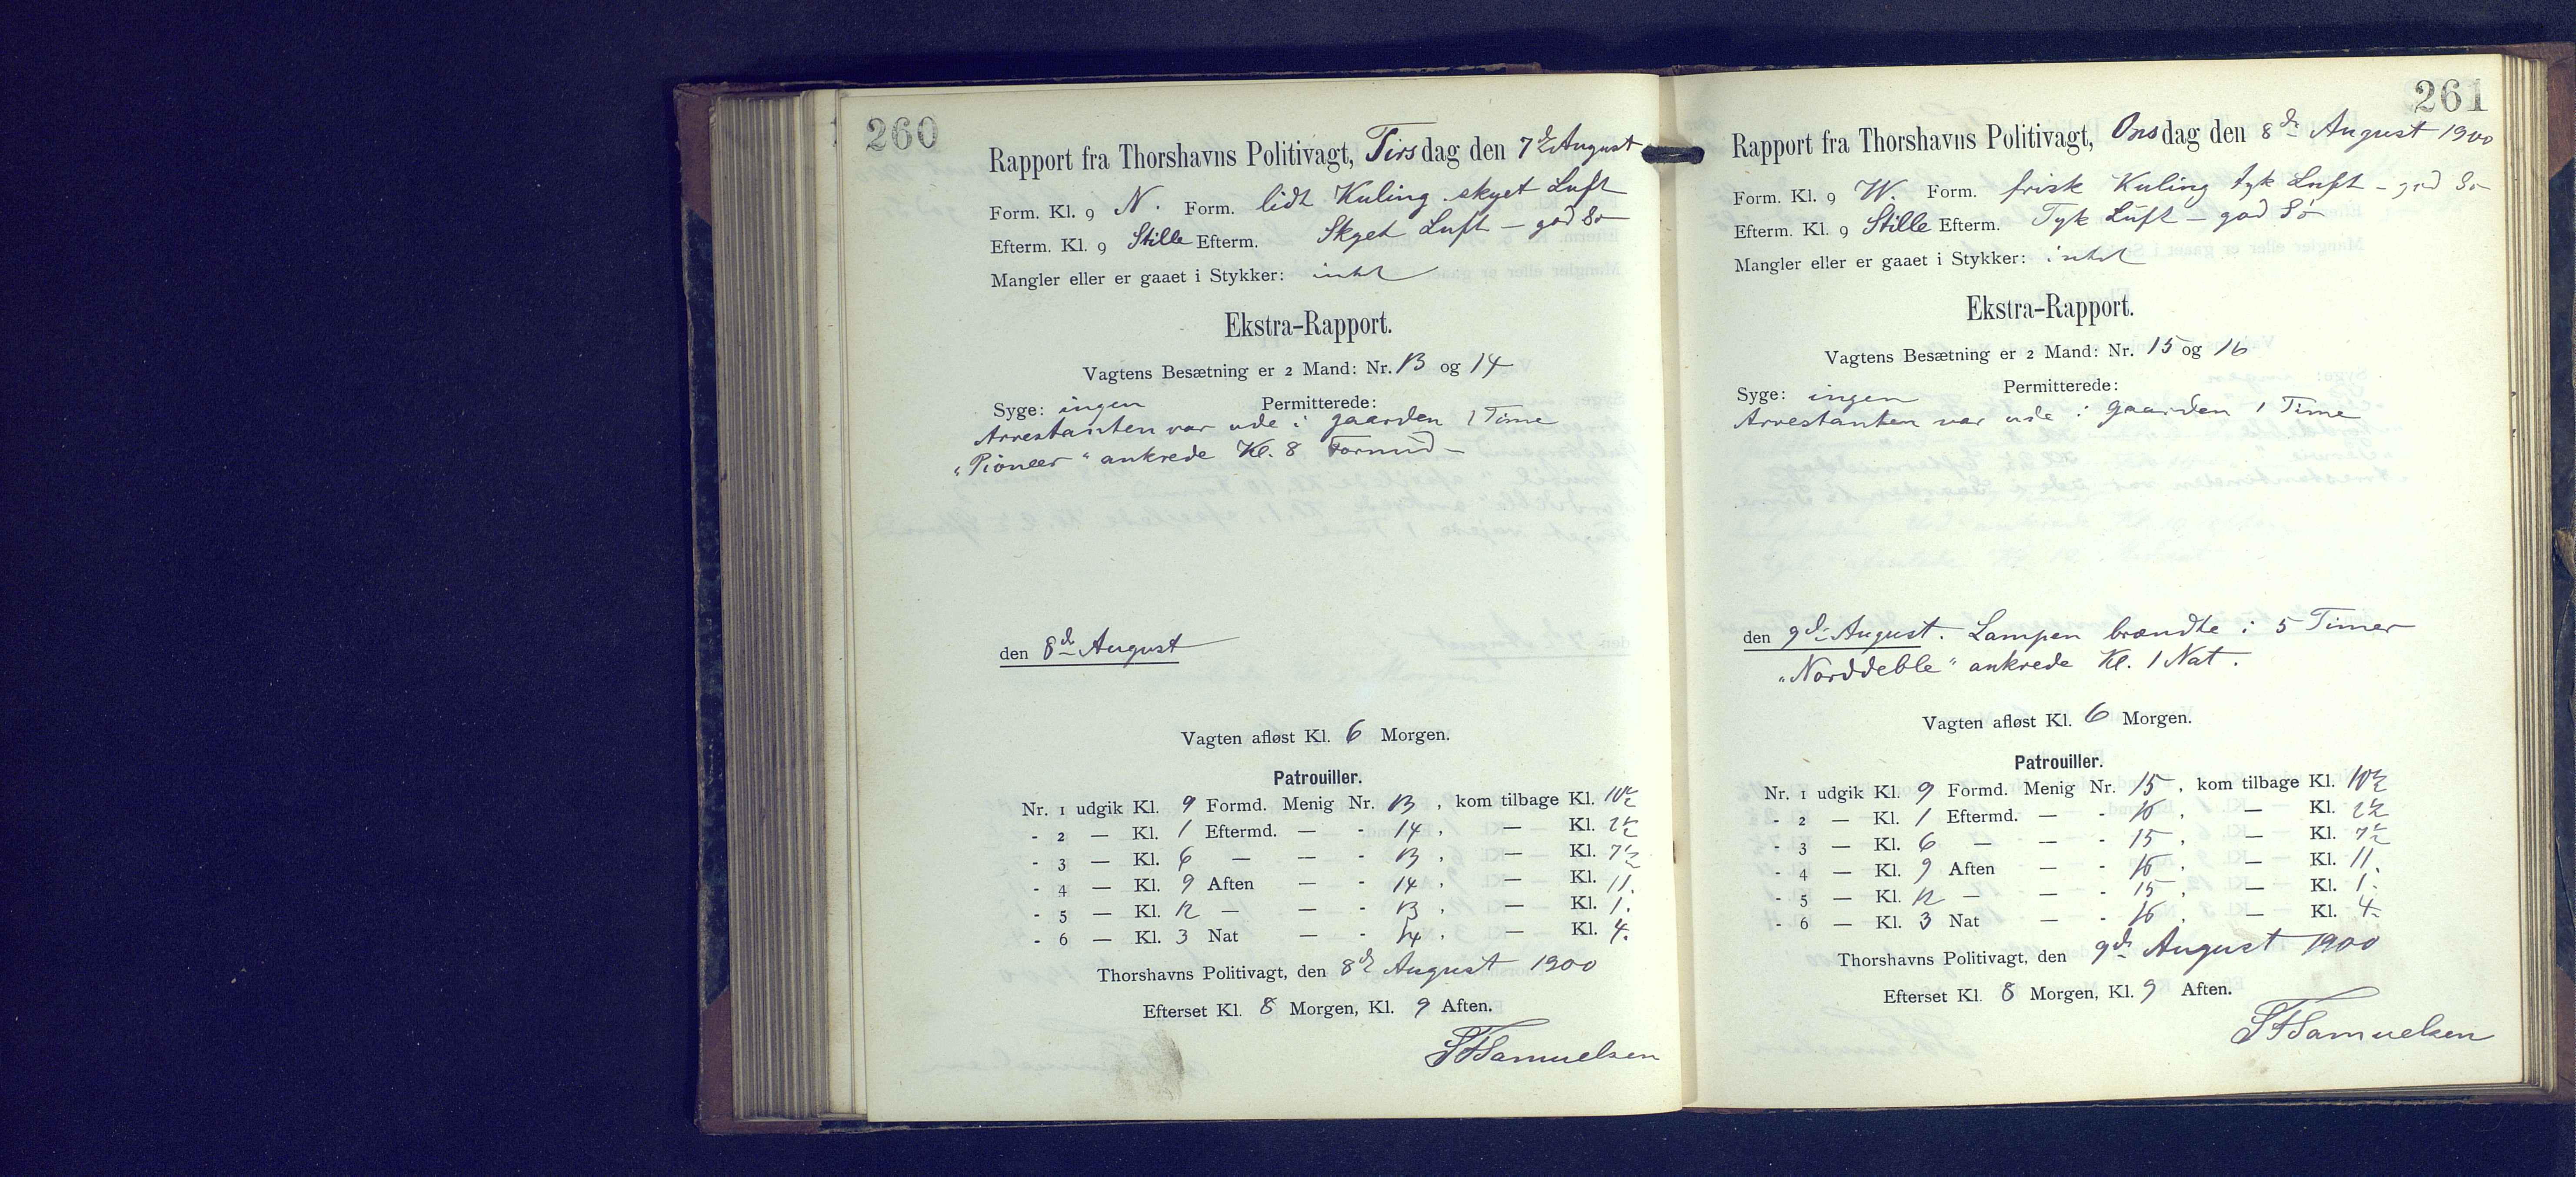 260
Rapport fra Thorshavns Politivagt, Tirsdag den 7de August
Form. Kl. 9 N. Form. lidt Kuling skyet Luft
Efterm. Kl. 9 Stille Efterm. Skyet Luft – god Sø
Mangler eller er gaaet i Stykker: intet
Ekstra-Rapport.
Vagtens Besætning er 2 Mand: Nr. 13 og 14
Syge: ingen Permitterede:
Arrestanten var ude i gaarden 1 Time
"Pioneer" ankrede Kl. 8 Formd –
den 8de August
Vagten afløst Kl. 6 Morgen.
Patrouiller.
Nr. 1 udgik Kl. 9 Formd. Menig Nr. 13, kom tilbage Kl. 10½
- 2 — Kl. 1 Eftermd. — - 14, — Kl. 2½
- 3 — Kl. 6 — — - 13, — Kl. 7½
- 4 — Kl. 9 Aften — - 14, — Kl. 11.
- 5 — Kl. 12 — — - 13, — Kl. 1.
- 6 — Kl. 3 Nat — - 14, — Kl. 4.
Thorshavns Politivagt, den 8de August 1900
Efterset Kl. 8 Morgen, Kl. 9 Aften.
SFSamuelsen
261
Rapport fra Thorshavns Politivagt, Onsdag den 8de August 1900
Form. Kl. 9 W. Form. frisk Kuling tyk Luft – god Sø
Efterm. Kl. 9 Stille Efterm. Tyk Luft – god Sø
Mangler eller er gaaet i Stykker: intet
Ekstra-Rapport.
Vagtens Besætning er 2 Mand: Nr. 15 og 16
Syge: ingen Permitterede:
Arrestanten var ude i gaarden 1 Time
den 9de August. Lampen brændte i 5 Timer
"Norddeble" ankrede Kl. 1 Nat.
Vagten afløst Kl. 6 Morgen.
Patrouiller.
Nr. 1 udgik Kl. 9 Formd. Menig Nr. 15, kom tilbage Kl. 10½
- 2 — Kl. 1 Eftermd. — - 16, — Kl. 2½
- 3 — Kl. 6 — — - 15, — Kl. 7½
- 4 — Kl. 9 Aften — - 16, — Kl. 11.
- 5 — Kl. 12 — — - 15, — Kl. 1.
- 6 — Kl. 3 Nat — - 16, — Kl. 4.
Thorshavns Politivagt, den 9de August 1900
Efterset Kl. 8 Morgen, Kl. 9 Aften.
SFSamuelsen